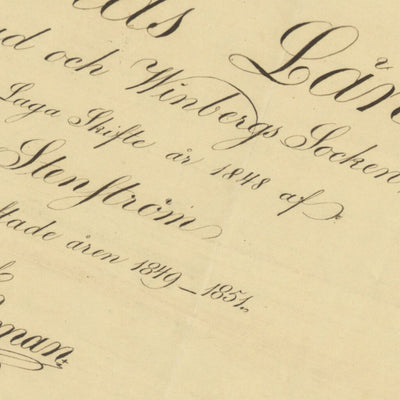 Län
och Winbergs Socken,
Laga Skifte år 1848 af
Stenström
åren 1849_1851.